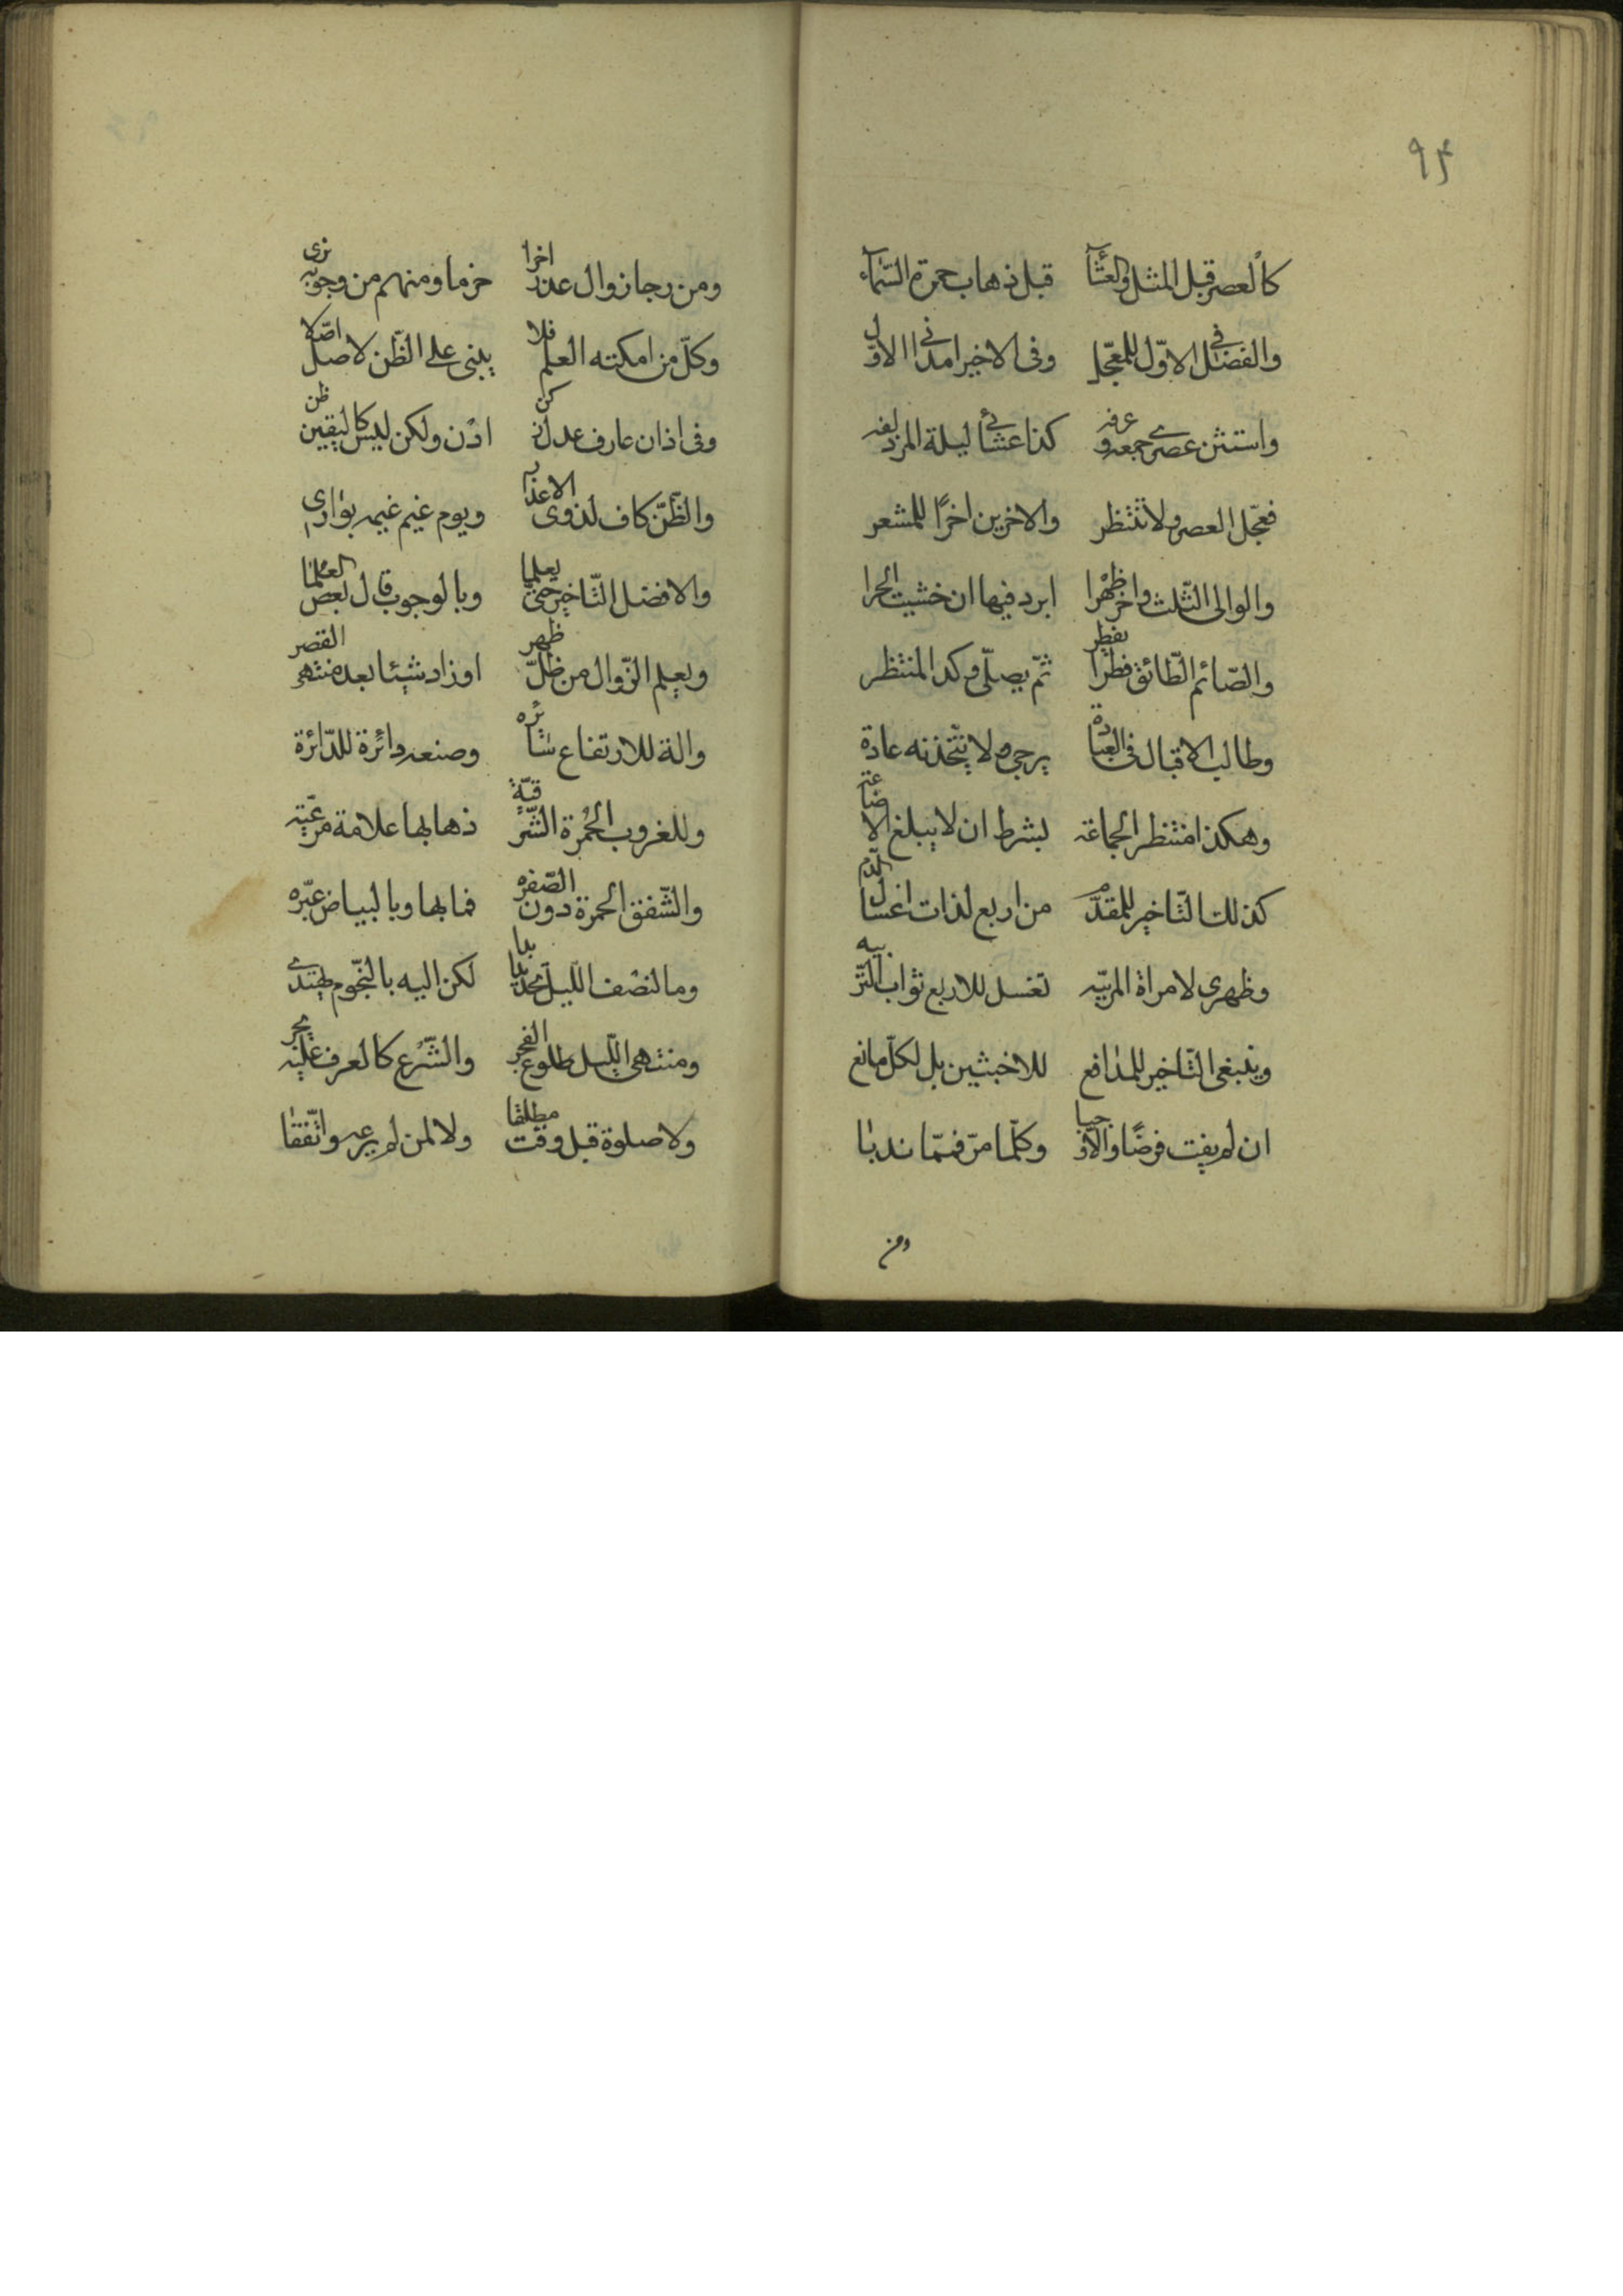 ٩٤
كالعصر قبل المثل والعشاء قبل ذهاب حمرة السماء
والفضل في الاوّل للمعجّل وفى الاخير امدنى الاوّل
واستثن عصرى جمعه وعرفه كذا عشائى ليلة المزدلفه
فعجّل العصر ولا تنتظر والاخرين اخرًا للمشعر
والوالى الثّلث واخّر ظهرا ابرد فيها ان خشيت الحرا
والصّائم التّائق فطرا يفطر ثمّ يصلّى وكذا المنتظر
وطالب الاقبال فى العبادة يرجى ولا يتّخذنه عادة
وهكذا منتظر الجماعة بشرط ان لا يبلغ الاضاعة
كذلك التّاخير للمقدّم من اربع لذات اغسال الدّم
وظهرى لامراة المربّيه تغسل للاربع ثواب التّربيه
وينبغى التّاخير للمدافع للاخبثين بل لكلّ مانع
ان لم يفت فرضًا والّا وجبا وكلّما مرّ فممّا ندبا
ومن
ومن رجا زوال عذر اخرا حزما ومنهم من وجوبه يرى
وكلّ من امكنه العلم فلا يبنى على الظّن لاصل اصّلا
وفى اذان عارف عدل زكن اذن ولكن ليس كاليقين ظن
والظّنّ كاف لذوى الاعذار ويوم غيم غيمه يوارى
والافضل التّاخير حتّى يعلما وبالوجوب قال بعض العلما
ويعلم الزّوال من ظلّ ظهر او زاد شيئا بعد منتهى القصر
والة للارتفاع شائره وصنعه دائرة للدّائرة
وللغروب الحمرة الشّرقيّة ذهابها علامة مرعيّه
والشّفق الحمرة دون الصّفره فما بها وبالبياض عبّره
وما لنصف اللّيل تحديد بدا لكن اليه بالنّجوم يهتدى
ومنتهى اللّيل طلوع الفجر والشّرع كالعرف عليه يجر
ولا صلوة قبل وقت مطلقا ولا لمن لم يرعه واتّفقا